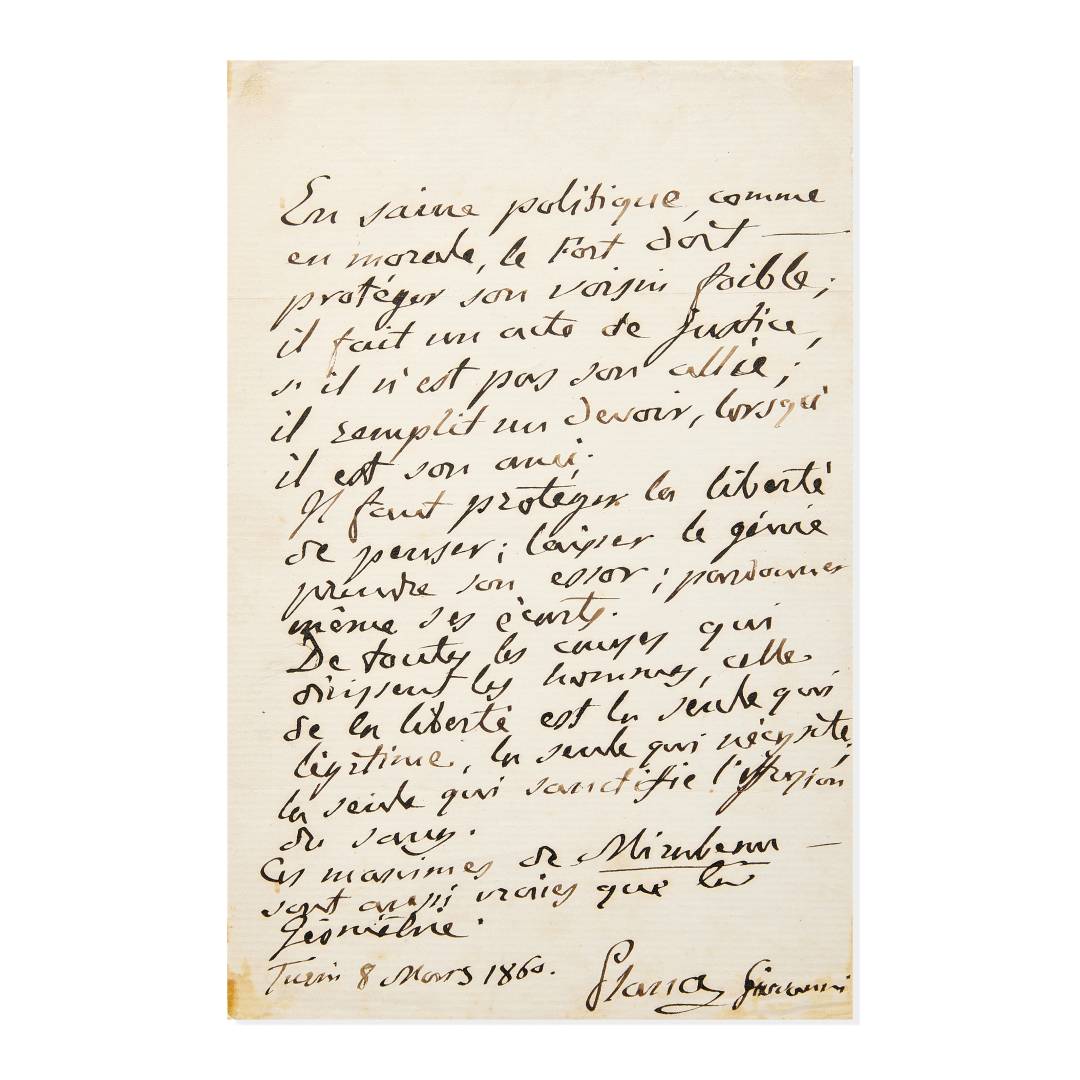 En saine politique, comme
en morale, le Fort doit —
protéger son voisin foible;
il fait un acte de justice,
s'il n'est pas son allié;
il remplit un devoir, lorsqu'
il est son ami.
Il faut protéger la liberté
de penser; laisser le génie
prendre son essor; pardonner
même ses écarts.
De toutes les causes qui
divisent les hommes, celle
de la liberté est la seule qui
légitime, la seule qui nécessite,
la seule qui sanctifie l'effusion
du sang.
Ces maximes de Mirabeau —
sont aussi vraies que la
Géométrie.
Turin 8 Mars 1860.
Plana Giovanni